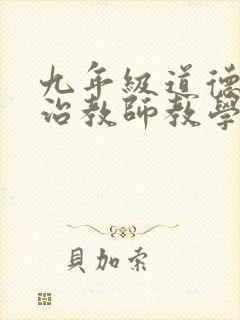 九年級道德
治教師教學
貝加索